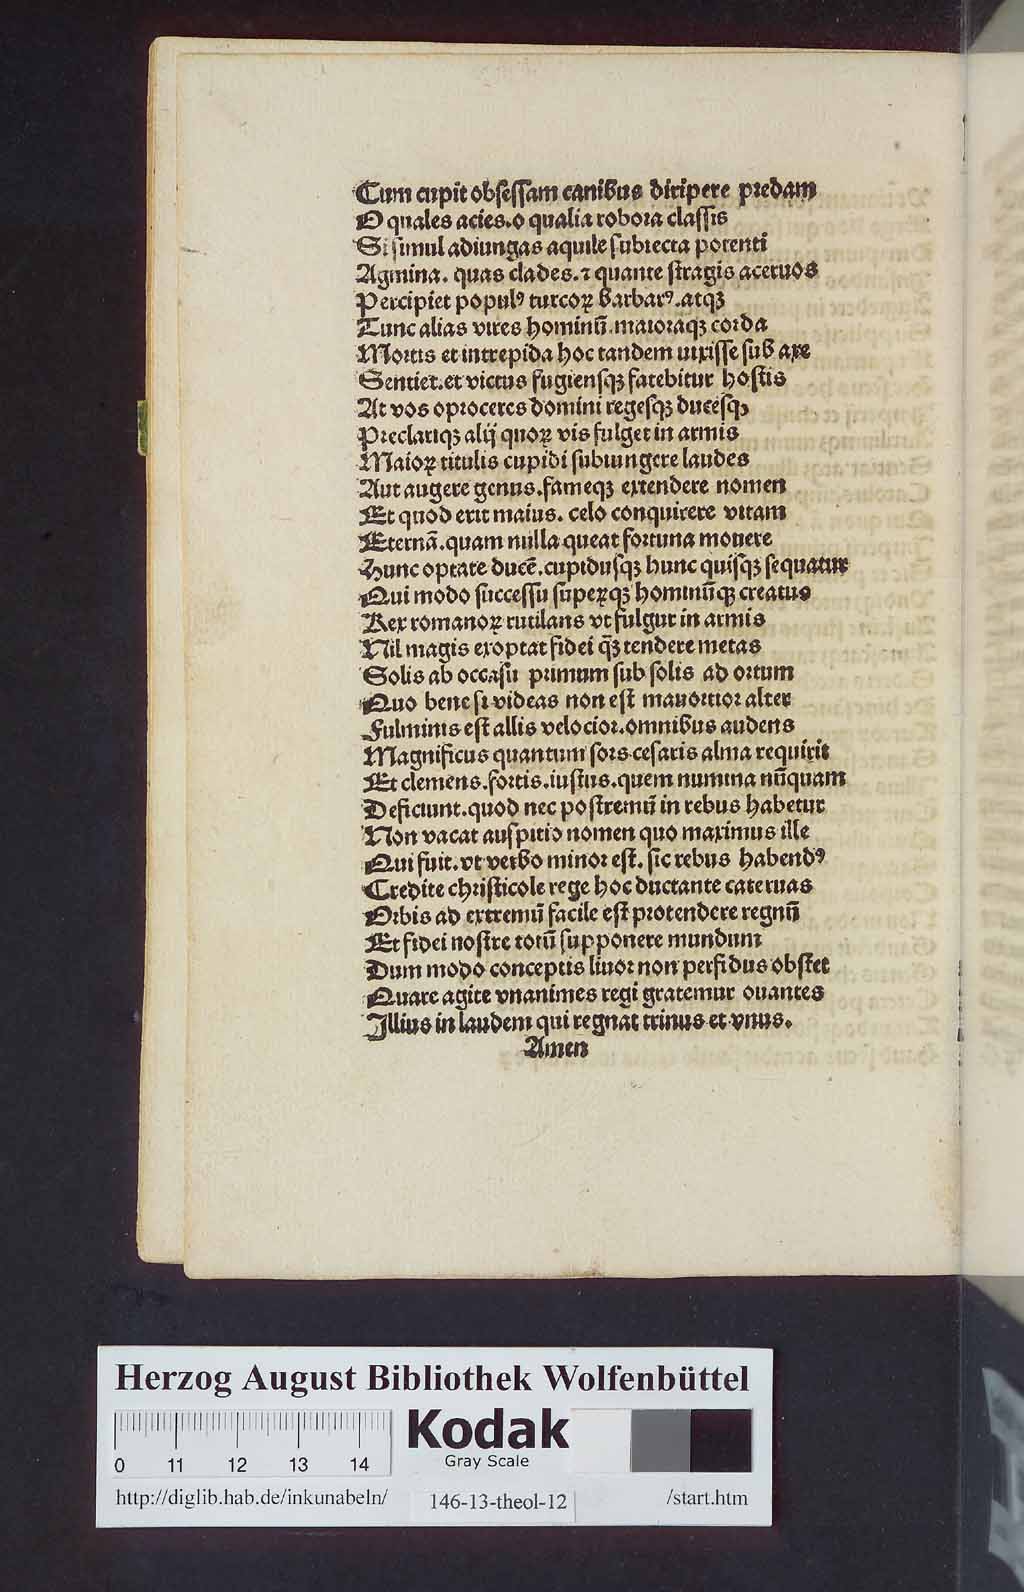 Cum cupit obsessam canibus diripere predam
O quales acies.o qualia robora classis
Si simul adiungas aquile subiecta potenti
Agmina. quas clades.⁊ quante stragis aceruos
Percipiet populꝰ turcoꝝ barbarꝰ.atqꝫ
Tunc alias vires hominū.maioraqꝫ corda
Mortis et intrepida hoc tandem uixisse sub axe
Sentiet.et victus fugiensqꝫ fatebitur hostis
At vos oproceres domini regesqꝫ ducesqꝫ
Preclariqꝫ alij quoꝝ vis fulget in armis
Maioꝝ titulis cupidi subiungere laudes
Aut augere genus.fameqꝫ extendere nomen
Et quod erit maius. celo conquirere vitam
Eternā.quam nulla queat fortuna mouere
Hunc optate ducē.cupidusqꝫ hunc quisqꝫ sequatur
Qui modo successu supeꝝqꝫ hominūqꝫ creatus
Rex romanoꝝ rutilans vt fulgur in armis
Nil magis exoptat fidei q̄ꝫ tendere metas
Solis ab occasu primum sub solis ad ortum
Quo bene si videas non est mauortior alter
Fulminis est allis velocior.omnibus audens
Magnificus quantum sors cesaris alma requirit
Et clemens.fortis.iustus.quem numina nūquam
Deficiunt.quod nec postremū in rebus habetur
Non vacat auspitio nomen quo maximus ille
Qui fuit.vt verbo minor est. sic rebus habendꝰ
Credite christicole rege hoc ductante cateruas
Orbis ad extremū facile est protendere regnū
Et fidei nostre totū supponere mundum
Dum modo conceptis liuor non perfidus obstet
Quare agite vnanimes regi gratemur ouantes
Illius in laudem qui regnat trinus et vnus.
Amen
Herzog August Bibliothek Wolfenbüttel
Kodak
Gray Scale
0 11 12 13 14
http://diglib.hab.de/inkunabeln/ 146-13-theol-12 /start.htm